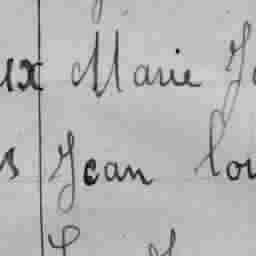 ux Marie J
s Jean lou